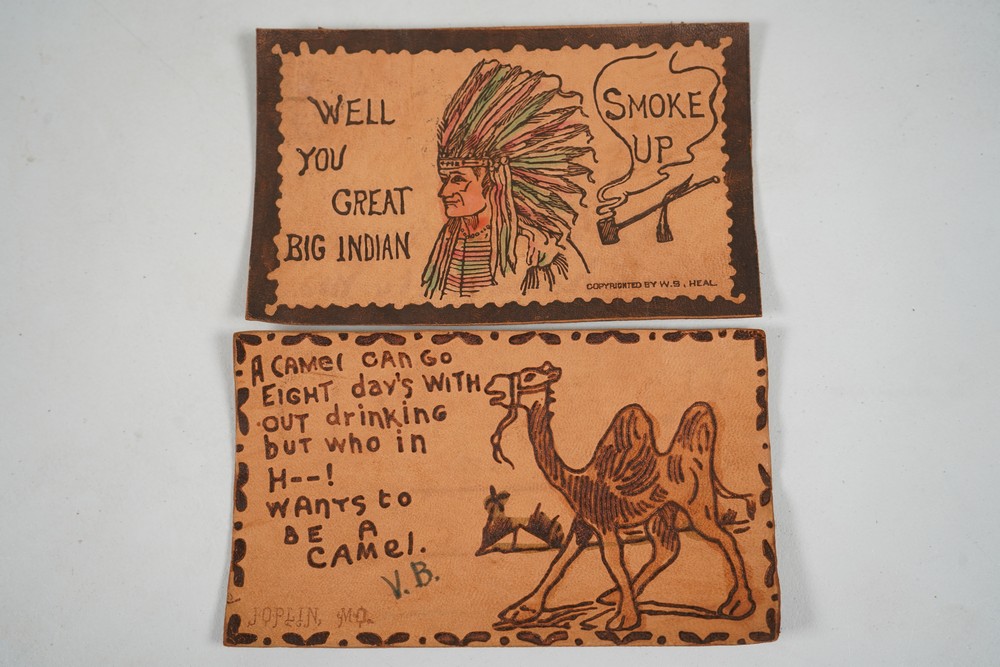 WELL
YOU
GREAT
BIG INDIAN
SMOKE
UP
COPYRIGHTED BY W.S. HEAL.
A CAMel CAn GO
EIGHT day's WITH
OUT drinking
but who in
H--!
WAnTs to
BE A
CAMel.
V.B.
JOPLIN, MO.